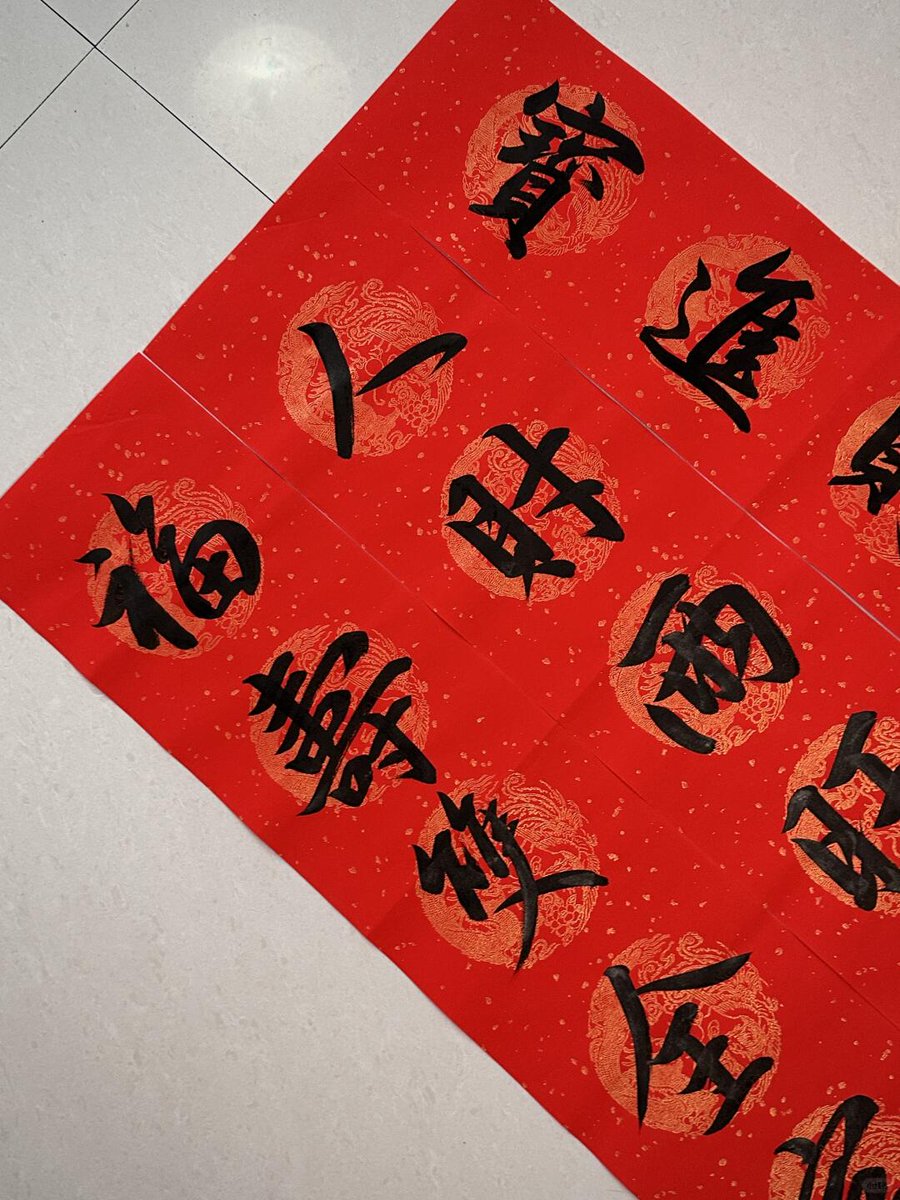 進寶
人財兩旺
福壽雙全